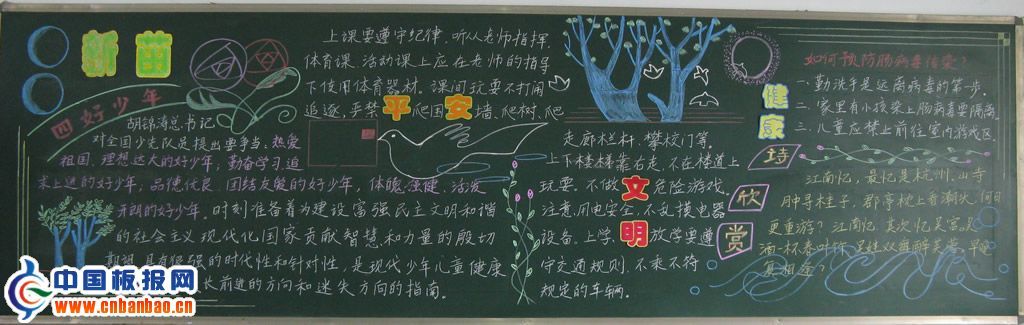 新苗
四好少年
胡锦涛总书记
对全国少先队员提出要争当:热爱
祖国、理想远大的好少年,勤奋学习、追
求上进的好少年,品德优良、团结友爱的好少年,体魄强健、活泼
开朗的好少年。时刻准备着为建设富强民主文明和谐
的社会主义现代化国家贡献智慧和力量的殷切
期望,具有很强的时代性和针对性,是现代少年儿童健康
长前进的方向和迷失方向的指南。
上课要遵守纪律,听从老师指挥,
体育课、活动课上应在老师的指导
下使用体育器材。课间玩耍不打闹
追逐,严禁爬围墙、爬树、爬
平安
走廊栏杆、攀校门等。
上下楼梯靠右走,不在楼道上
玩耍。不做危险游戏。
注意用电安全,不乱摸电器
设备。上学、放学要遵
守交通规则,不乘不符
规定的车辆。
文明
健康
如何预防肠病毒传染?
一、勤洗手是远离病毒的第一步。
二、家里有小孩染上肠病毒要隔离
三、儿童应禁止前往室内游戏区
诗欣赏
江南忆,最忆是杭州。山寺
月中寻桂子,郡亭枕上看潮头。何日
更重游?江南忆,其次忆吴宫。吴
酒一杯春叶,吴娃双舞醉芙蓉。早晚
复相逢?
中国板报网
www.cnbanbao.cn